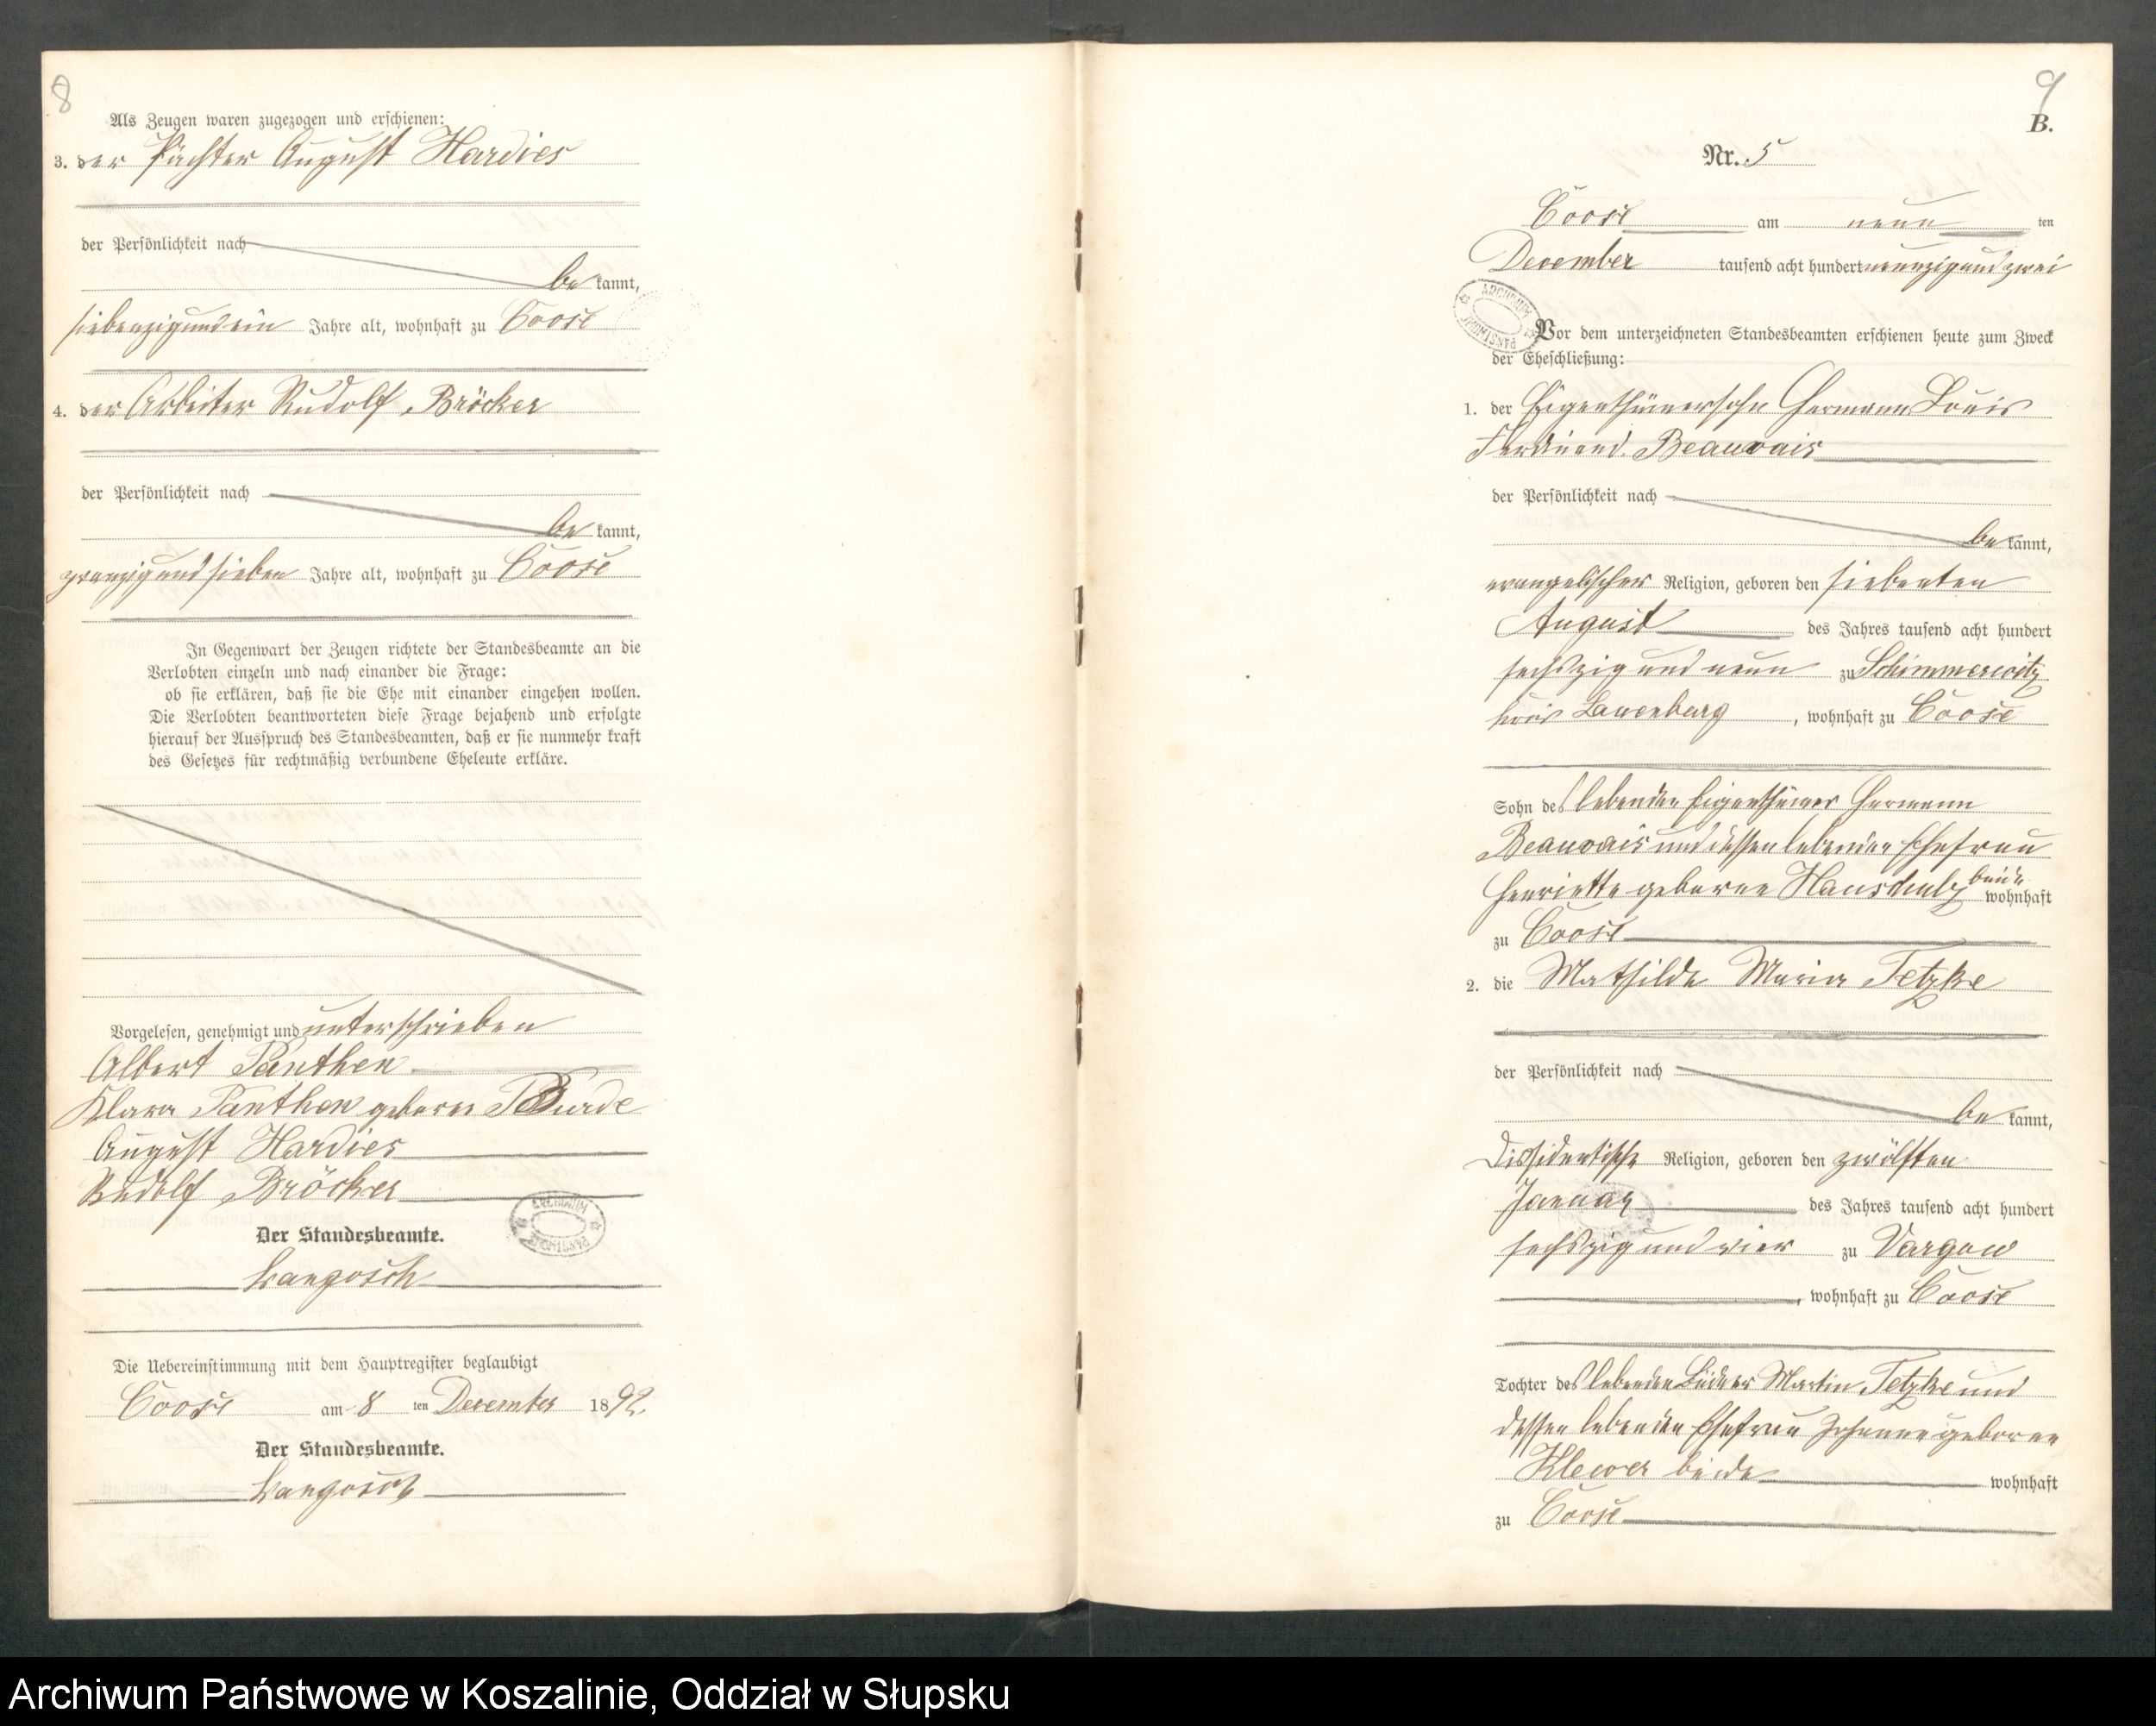 8
Als Zeugen waren zugezogen und erschienen:
3. der Pächter August Hardies
der Persönlichkeit nach
be kannt,
siebenzig und ein Jahre alt, wohnhaft zu Coose
4. der Arbeiter Rudolf Bröcker
der Persönlichkeit nach
be kannt,
zwanzig und sieben Jahre alt, wohnhaft zu Coose
In Gegenwart der Zeugen richtete der Standesbeamte an die
Verlobten einzeln und nach einander die Frage:
ob sie erklären, daß sie die Ehe mit einander eingehen wollen.
Die Verlobten beantworteten diese Frage bejahend und erfolgte
hierauf der Ausspruch des Standesbeamten, daß er sie nunmehr kraft
des Gesetzes für rechtmäßig verbundene Eheleute erkläre.
Vorgelesen, genehmigt und unterschrieben
Albert Panthen
Klara Panthen geborne
August Hardies
Rudolf Bröcker
Der Standesbeamte.
Langosch
Die Uebereinstimmung mit dem Hauptregister beglaubigt
Coose am 8 ten December 1892.
Der Standesbeamte.
Langosch
ARCHIWUM PAŃSTWOWE
9
B.
Nr. 5
Coose am neun ten
December tausend acht hundert neunzig und zwei
ARCHIWUM PAŃSTWOWE
Vor dem unterzeichneten Standesbeamten erschienen heute zum Zweck
der Eheschließung:
1. der Eigenthümersohn Hermann Louis
Ferdinand Beauvais
der Persönlichkeit nach
be kannt,
evangelischer Religion, geboren den siebenten
August des Jahres tausend acht hundert
sechszig und neun zu Schimmerwitz
Kreis Lauenburg, wohnhaft zu Coose
Sohn des lebenden Eigenthümer Hermann
Beauvais und dessen lebenden Ehefrau
Henriette geborne beide wohnhaft
zu Coose
2. die Mathilde Maria Tetzke
der Persönlichkeit nach
be kannt,
dissidentische Religion, geboren den zwölften
Januar des Jahres tausend acht hundert
sechszig und vier zu Vargow
, wohnhaft zu Coose
Tochter des lebenden Büdner Martin Tetzke und
dessen lebenden Ehefrau Johanne geborne
Klewer beide wohnhaft
zu Coose
Archiwum Państwowe w Koszalinie, Oddział w Słupsku